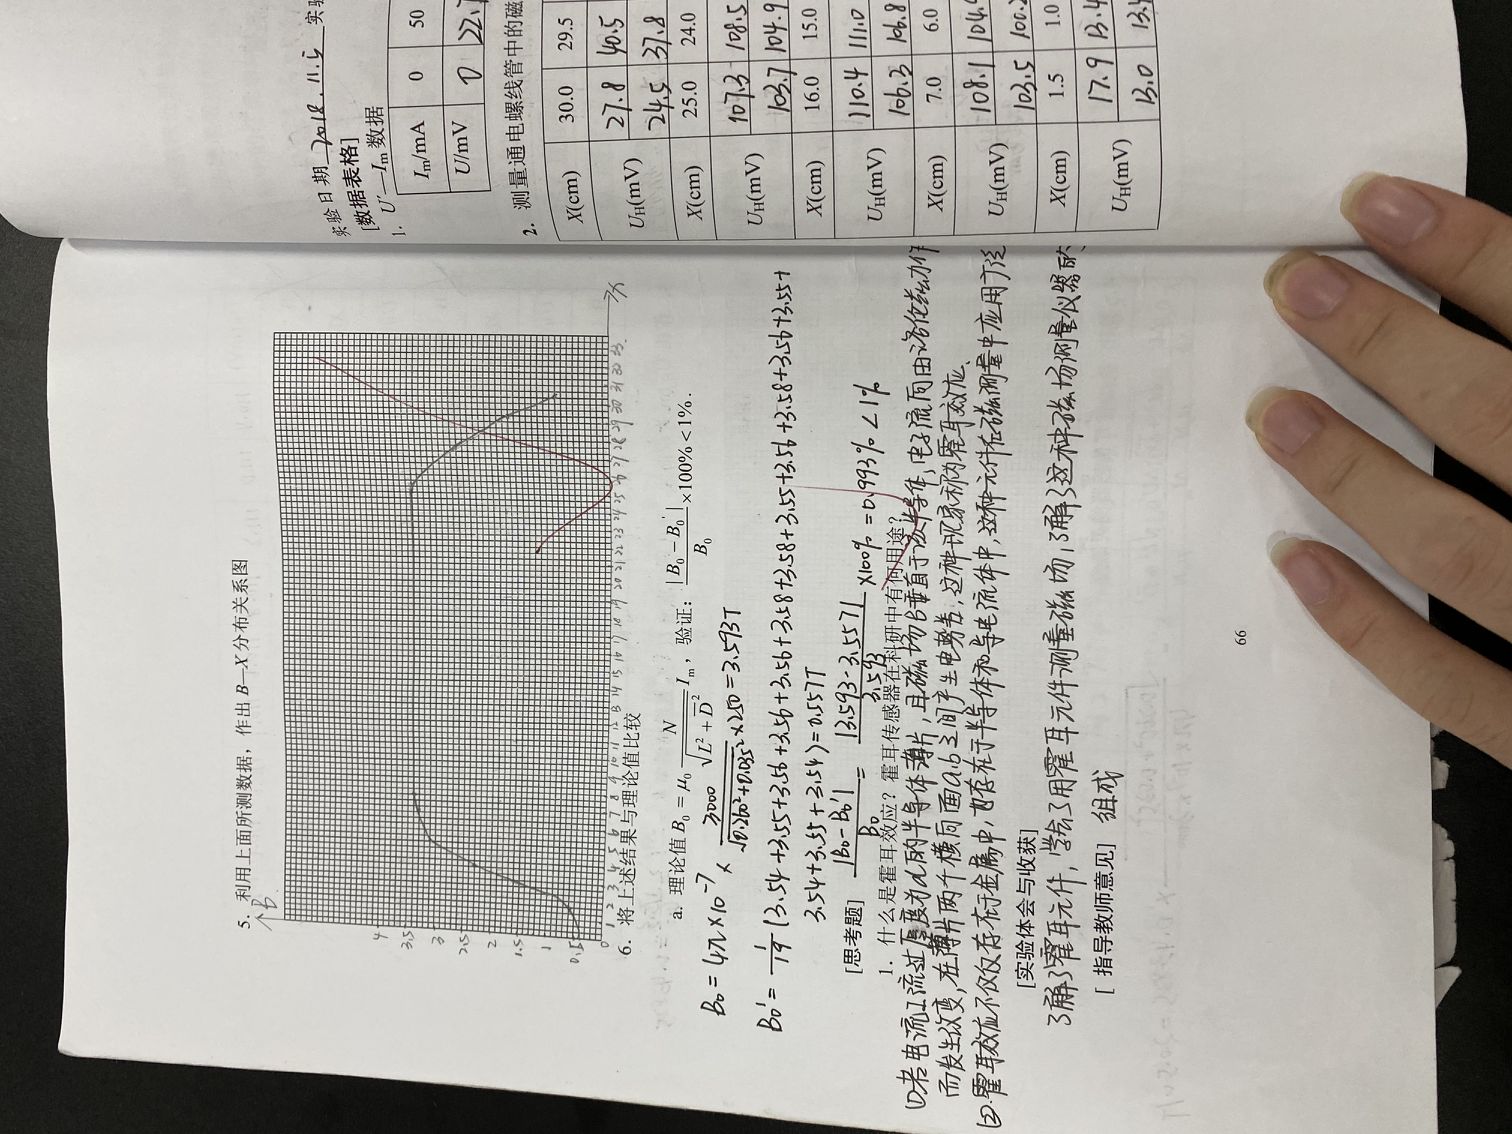 5. 利用上面所测数据，作出 B—X 分布关系图
B
4
3.5
3
2.5
2
1.5
1
0.5
0 1 2 3 4 5 6 7 8 9 10 11 12 13 14 15 16 17 18 19 20 21 22 23 24 25 26 27 28 29 30 31 32 33 X
6. 将上述结果与理论值比较
a. 理论值 B₀ = μ₀ N/√(L² + D̅²) Iₘ，验证：|B₀ − B₀′|/B₀ ×100% < 1%.
B₀ = 4π×10⁻⁷ × 3000/√(0.260²+0.035²) ×250 = 3.593T
B₀′ = 1/19 (3.54+3.55+3.56+3.56+3.56+3.58+3.58+3.55+3.56+3.58+3.56+3.55+
3.54+3.55+3.54) = 0.557T
[思考题] |B₀−B₀′|/B₀ = |3.593-3.557|/3.593 ×100% = 0.993% < 1%
1. 什么是霍耳效应？霍耳传感器在科研中有何用途？
(1)若电流I流过厚度为d的半导体薄片，且磁场B垂直于该半导体，电子流向由洛伦兹力作
而发生改变，在薄片两个横向面a.b之间产生电势差，这种现象称为霍耳效应.
(2).霍耳效应不仅仅存在于金属中，也存在于半导体和导电流体中，这种元件在磁测量中应用广泛
[实验体会与收获]
了解了霍耳元件，学会了用霍耳元件测量磁场，了解了这种磁场测量仪器的
[ 指导教师意见] 组成
66
实验日期 2018.11.5 实验
[数据表格]
1. U′—Iₘ 数据
Iₘ/mA 0 50
U/mV 0 22.
2. 测量通电螺线管中的磁
X(cm) 30.0 29.5
U_H(mV) 27.8 40.5
24.5 37.8
X(cm) 25.0 24.0
U_H(mV) 107.3 108.5
103.7 104.9
X(cm) 16.0 15.0
U_H(mV) 110.4 111.0
106.3 106.8
X(cm) 7.0 6.0
U_H(mV) 108.1 104.
103.5 100.
X(cm) 1.5 1.0
U_H(mV) 17.9 13.4
13.0 13.